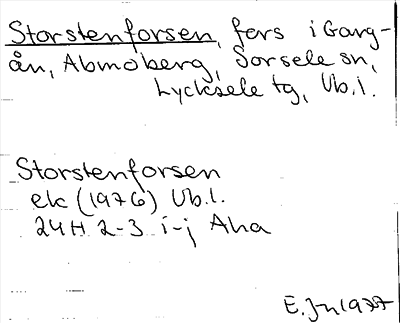 Storstenforsen, fors i Garg-
ån, Abmoberg, Sorsele sn,
Lycksele tg, Vb.l.
Storstenforsen
ek (1976) Vb.l.
24H 2-3 i-j Aha
E. Jn 1977